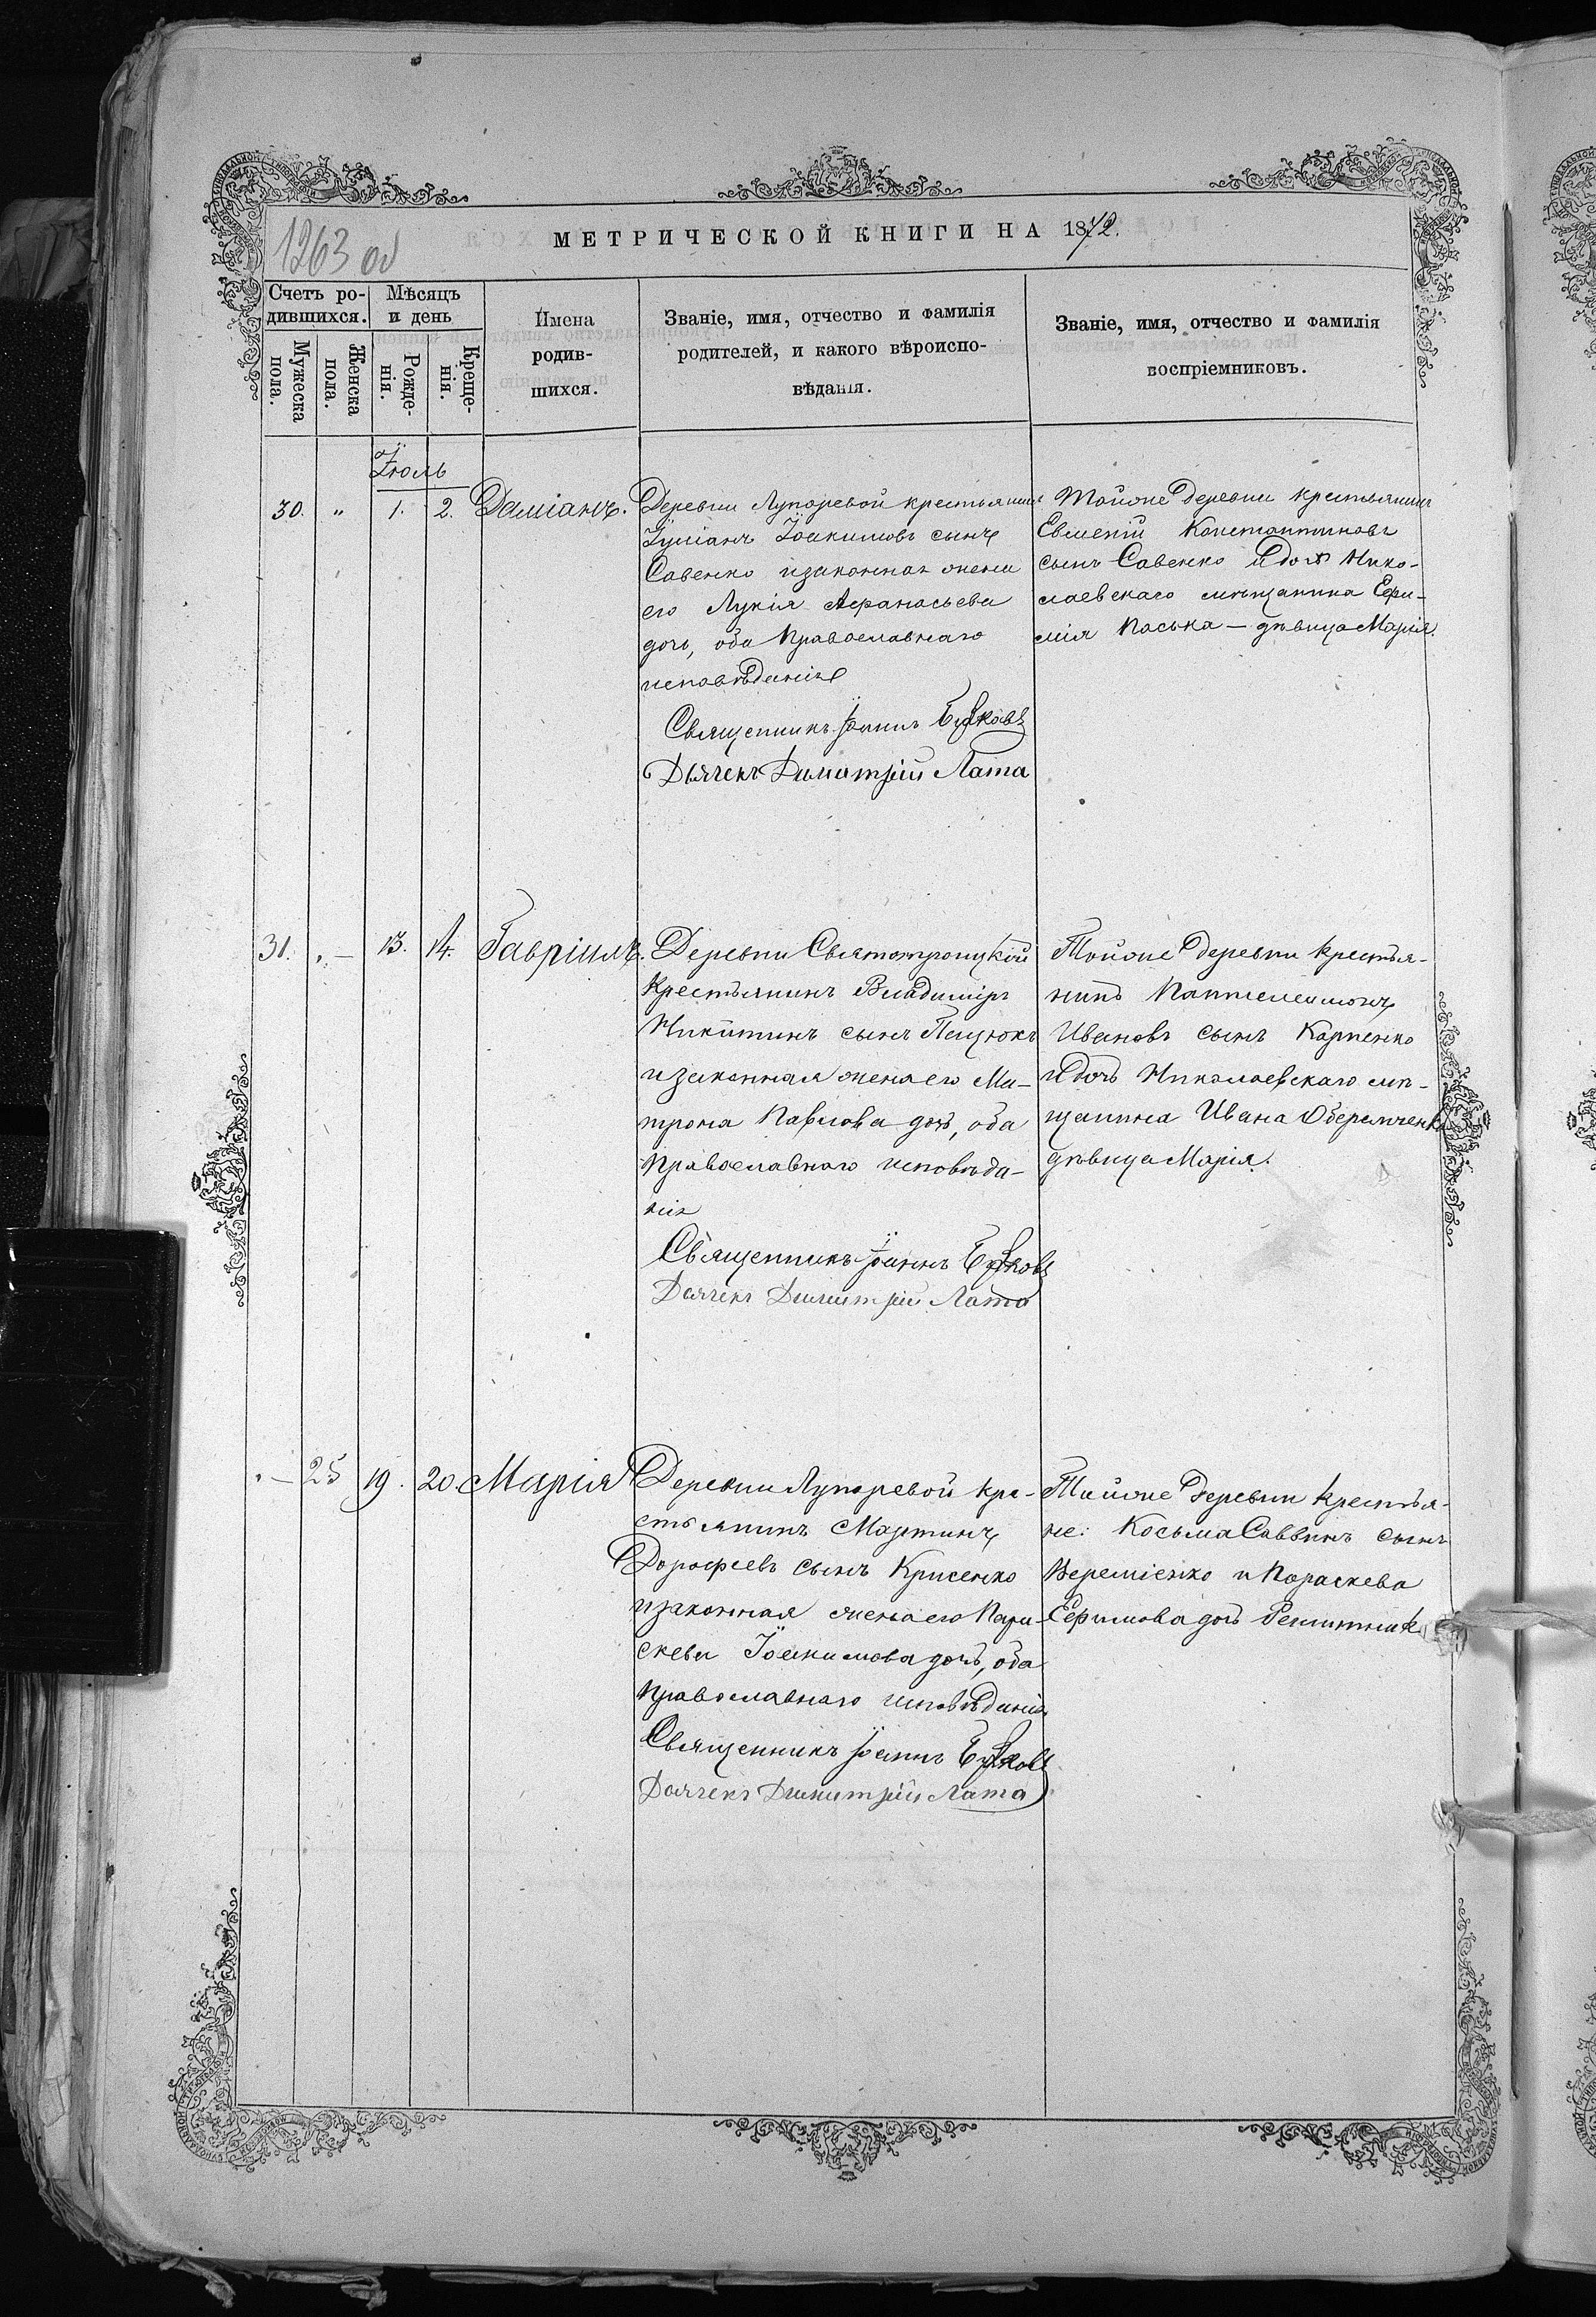 1263 об
МЕТРИЧЕСКОЙ КНИГИ НА 1872.
Счетъ ро-
дившихся.
Мужеска
пола.
Женска
пола.
Мѣсяцъ
и день
Рожде-
нія.
Креще-
нія.
Имена
родив-
шихся.
Званіе, имя, отчество и фамилія
родителей, и какого вѣроиспо-
вѣданія.
Званіе, имя, отчество и фамилія
воспріемниковъ.
Іюль
30. " 1. 2. Даміанъ.
Деревни Лупаревой крестьянинъ
Іуліанъ Іоакимовъ сынъ
Савенко и законная жена
его Лукія Афанасьева
дочь, оба Православнаго
исповѣданія
Священникъ Іоаннъ
Дьячекъ Димитрій Лата
Тойже деревни крестьянинъ
Евменій Константиновъ
сынъ Савенко и дочь Нико-
лаевскаго мѣщанина Ефи-
мія Паська — дѣвица Марія.
31. " — 13. 14. Гавріилъ.
Деревни Святотроицкой
Крестьянинъ Владиміръ
Никитинъ сынъ Пацюкъ
и законная жена его Ма-
трона Павлова дочь, оба
Православнаго исповѣда-
нія
Священникъ Іоаннъ
Дьячекъ Димитрій Лата
Тойже деревни крестья-
нинъ Пантелеимонъ
Ивановъ сынъ Карпенко
и дочь Николаевскаго мѣ-
щанина Ивана
дѣвица Марія.
" — 25 19. 20. Марія
Деревни Лупаревой кре-
стьянинъ Мартинъ
Дорофеевъ сынъ Крисенко
и законная жена его Пара-
скева Іоакимова дочь, оба
Православнаго исповѣданія
Священникъ Іоаннъ
Дьячекъ Димитрій Лата
Тойже деревни крестья-
не: Косьма Саввинъ сынъ
Вереміенко и Параскева
Ефимова дочь